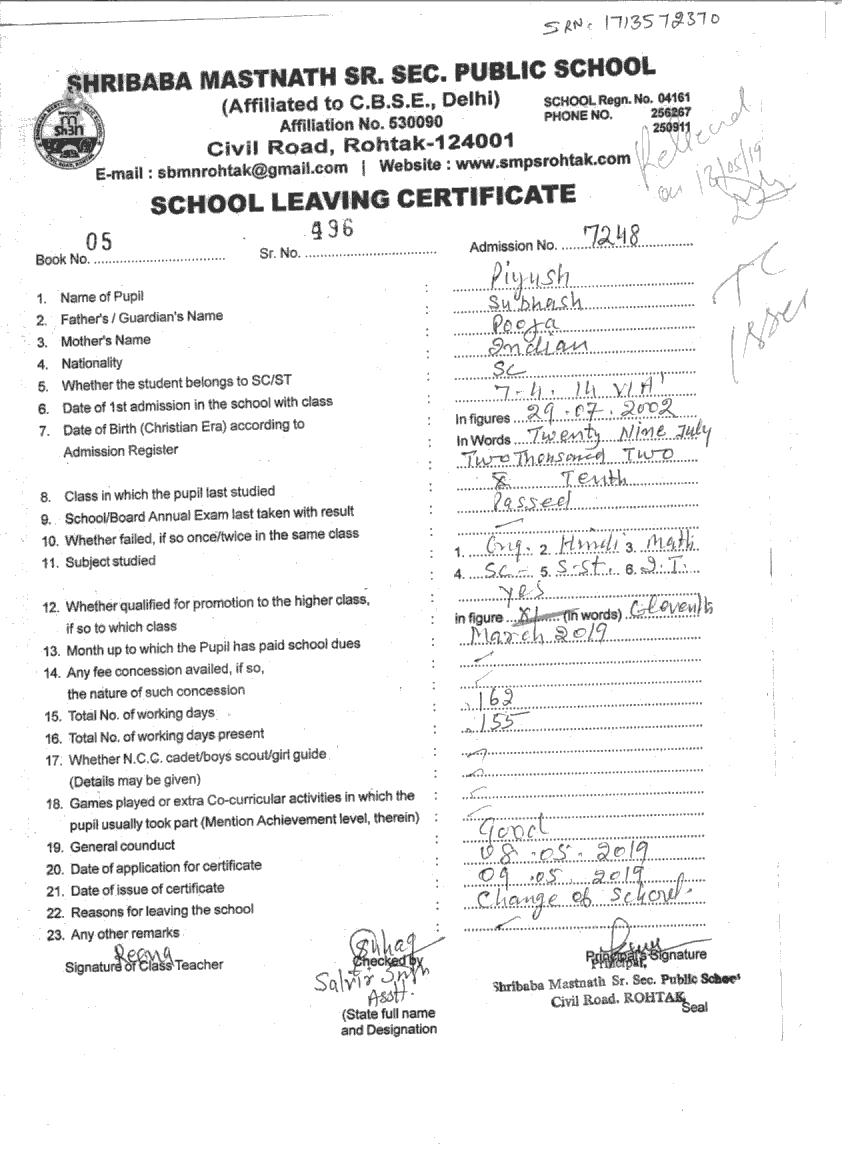 SRN: 1713572370
SHRIBABA MASTNATH SR. SEC. PUBLIC SCHOOL
(Affiliated to C.B.S.E., Delhi)
SCHOOL Regn. No. 04161
Affiliation No. 530090
PHONE NO. 256267
250911
Civil Road, Rohtak-124001
E-mail : sbmnrohtak@gmail.com | Website : www.smpsrohtak.com
on 13/05/19
SCHOOL LEAVING CERTIFICATE
Book No. 05 Sr. No. 496 Admission No. 7248
TC
1. Name of Pupil : Piyush
2. Father's / Guardian's Name : Subhash
3. Mother's Name : Pooja
4. Nationality : Indian
5. Whether the student belongs to SC/ST : SC
6. Date of 1st admission in the school with class : 7-4-14 VI A
7. Date of Birth (Christian Era) according to : In figures 29.07.2002
Admission Register In Words Twenty Nine July
Two Thousand Two
8. Class in which the pupil last studied : Tenth
9. School/Board Annual Exam last taken with result : Passed
10. Whether failed, if so once/twice in the same class :
11. Subject studied : 1. Eng. 2. Hindi 3. Math
4. SC - 5. S.St. 6. I.T.
12. Whether qualified for promotion to the higher class, : yes
if so to which class in figure XI (in words) Eleventh
13. Month up to which the Pupil has paid school dues : March 2019
14. Any fee concession availed, if so, :
the nature of such concession
15. Total No. of working days : 162
16. Total No. of working days present : 155
17. Whether N.C.C. cadet/boys scout/girl guide :
(Details may be given)
18. Games played or extra Co-curricular activities in which the :
pupil usually took part (Mention Achievement level, therein) :
19. General counduct : good
20. Date of application for certificate : 08.05.2019
21. Date of issue of certificate : 09.05.2019
22. Reasons for leaving the school : Change of School.
23. Any other remarks :
Signature of Class Teacher
Checked by
Principal's Signature
Principal,
Asstt.
Shribaba Mastnath Sr. Sec. Public School
Civil Road. ROHTAK
Seal
(State full name
and Designation